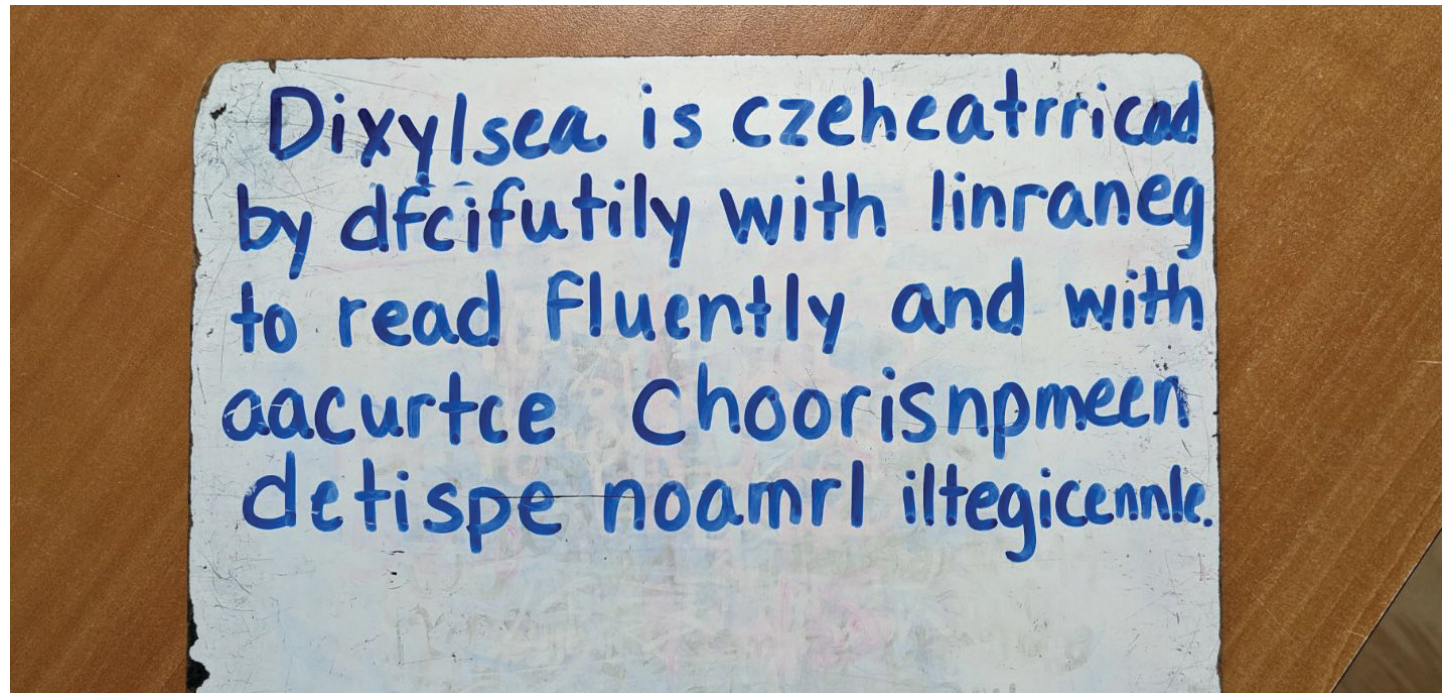 Dixylsea is czeheatrricad
by dfcifutily with linraneg
to read fluently and with
aacurtce Choorisnpmeen
detispe noamrl iltegicennle.